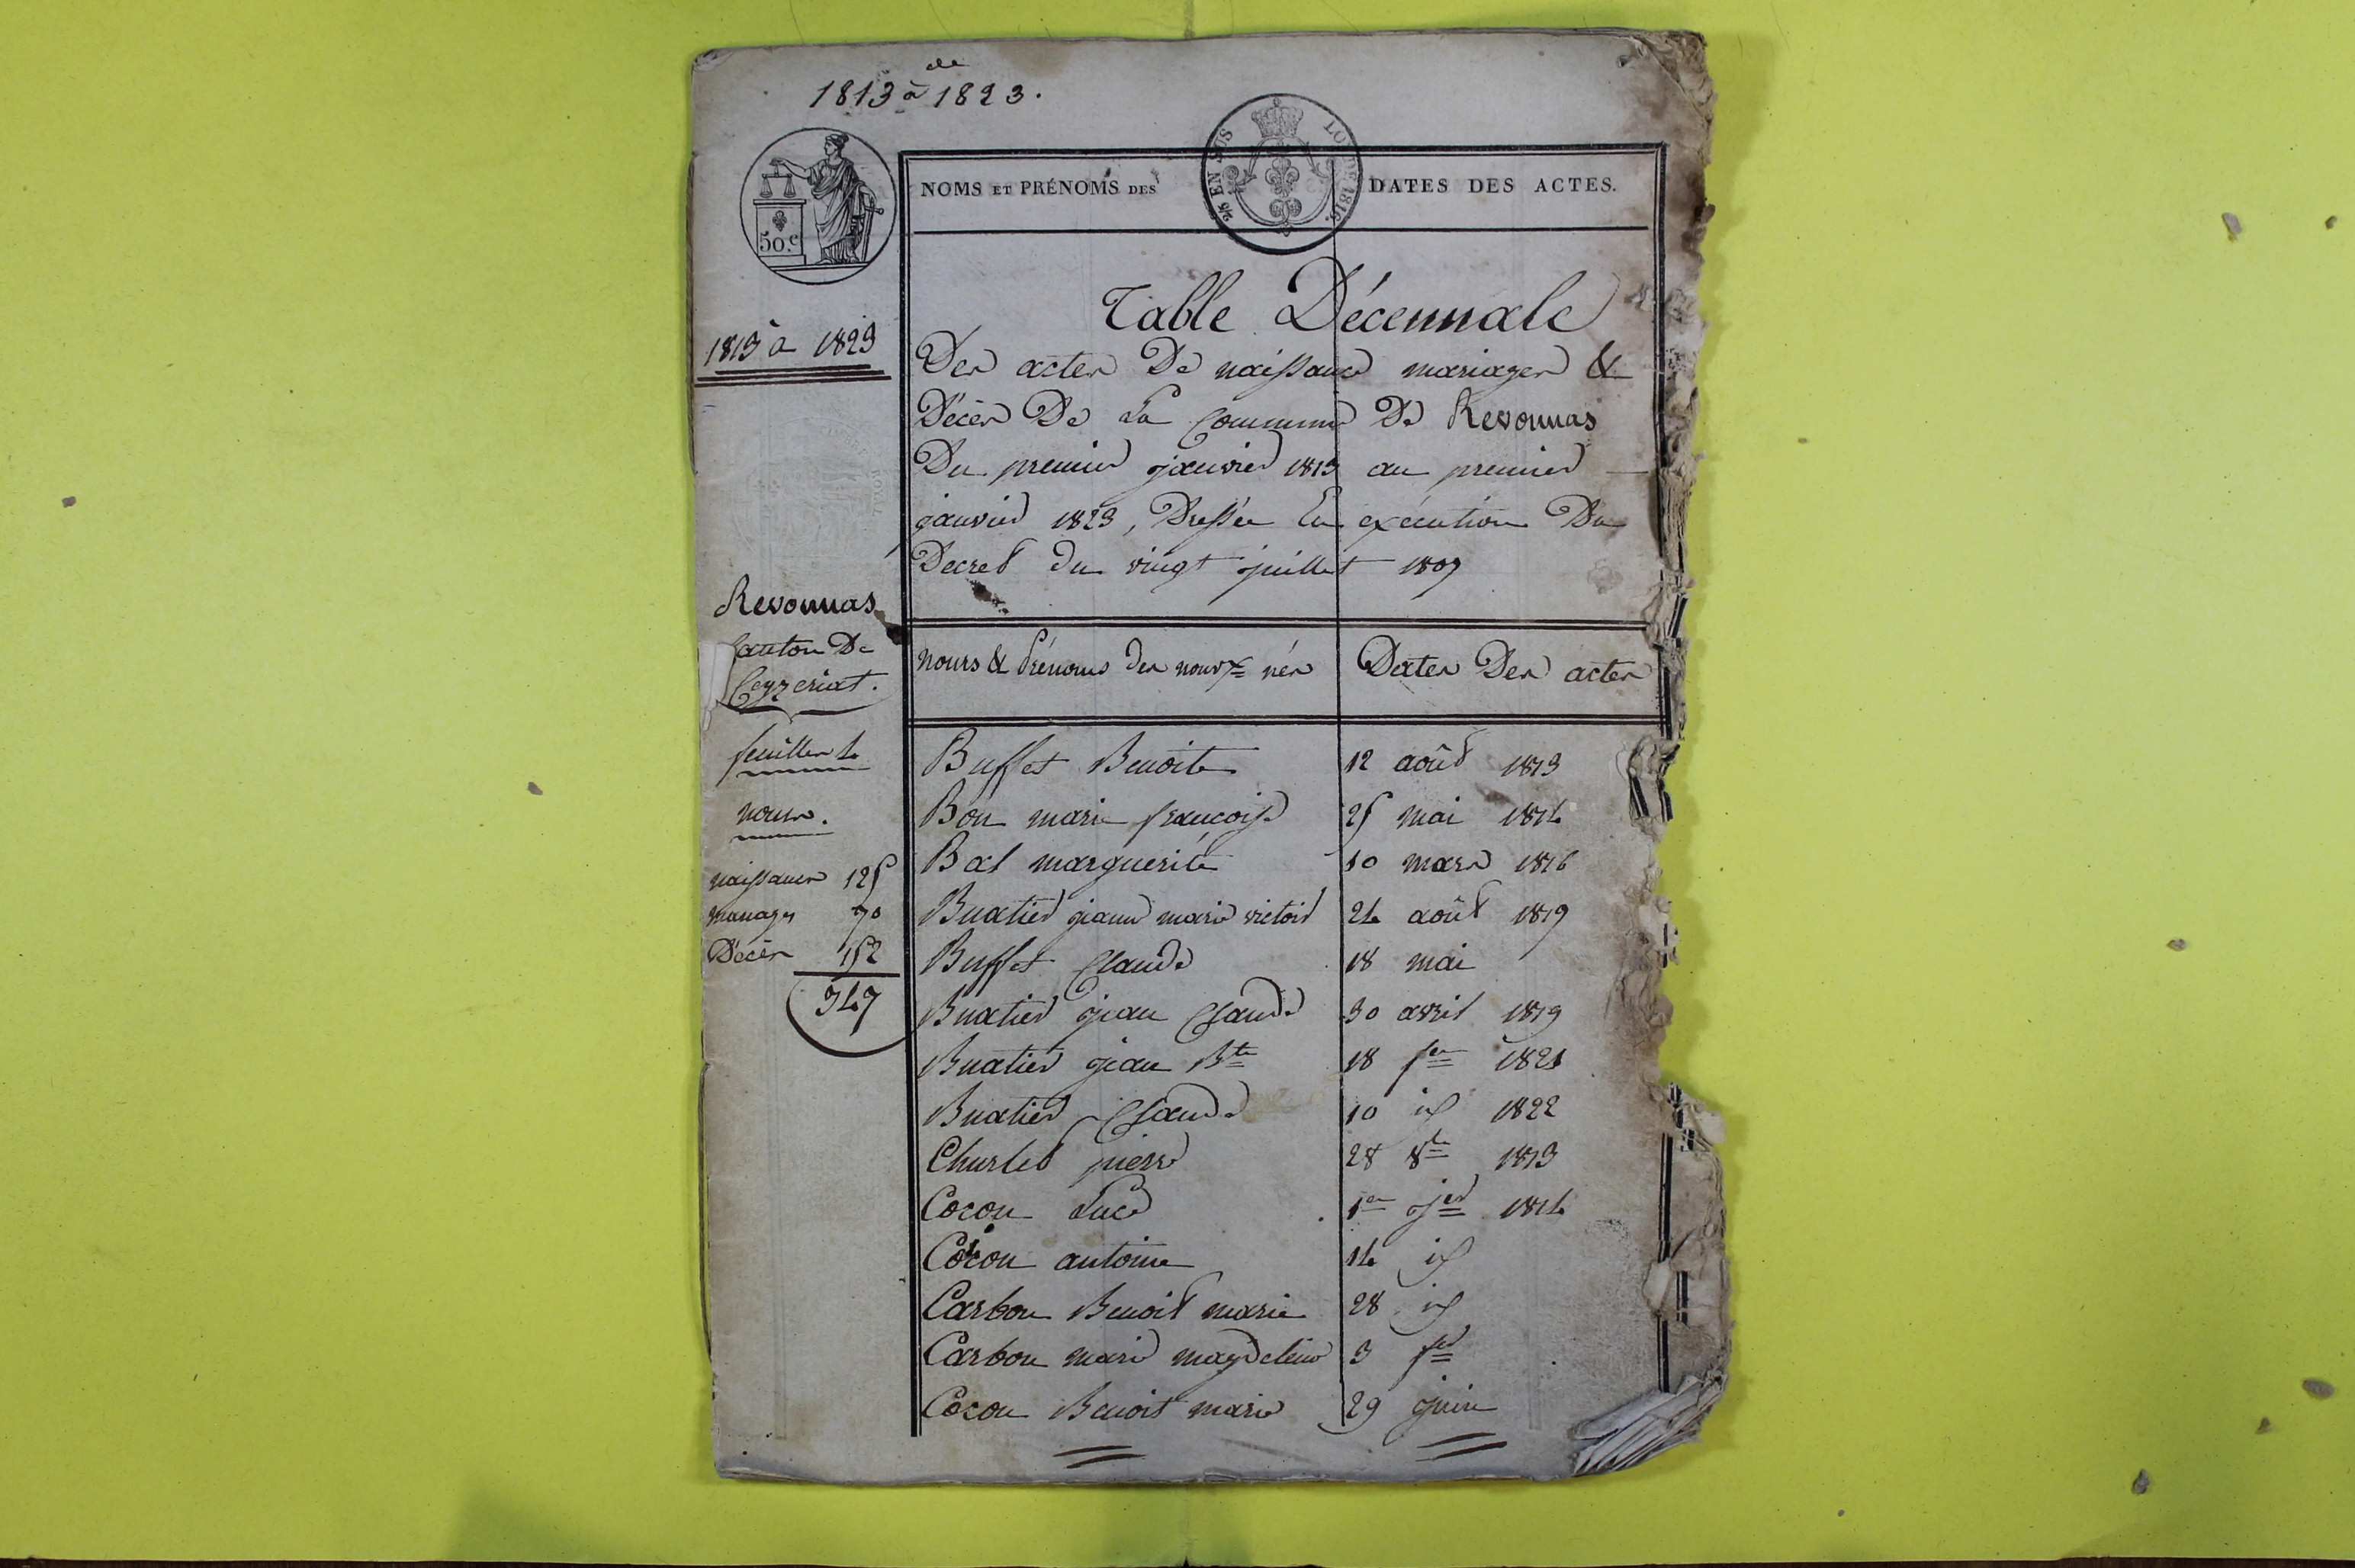 de
1813 à 1823.
50.c
2/5 EN SUS
LOI DE 1816.
NOMS ET PRÉNOMS DES
DATES DES ACTES.
1813 à 1823
Table Décennale
Des actes De naissance mariages &
Décès De La Commune De Revonnas
Du premier janvier 1813 au premier
janvier 1823, Dressée En exécution Du
Decret du vingt juillet 1807
Revonnas
Canton De
Ceyzeriat.
feuilles 4
noms.
naissances 125
mariages 70
Décès 152
347
noms & Prénoms des nouvx nés Dates Des actes
Buffet Benoite 12 août 1813
Bon marie françoise 25 mai 1814
Bal marguerite 10 mars 1816
Buatier jeanne marie victoire 24 août 1819
Buffet Claude 18 mai
Buatier jean Claude 30 avril 1819
Buatier jean Bte 18 fer 1821
Buatier Claude 10 id 1822
Churlet pierre 28 8bre 1813
Cocon Luce 1er jer 1814
Cocon antoine 14 id
Carbon Benoit marie 28 id
Carbon marie magdeleine 3 fer
Cocon Benoit marie 29 juin